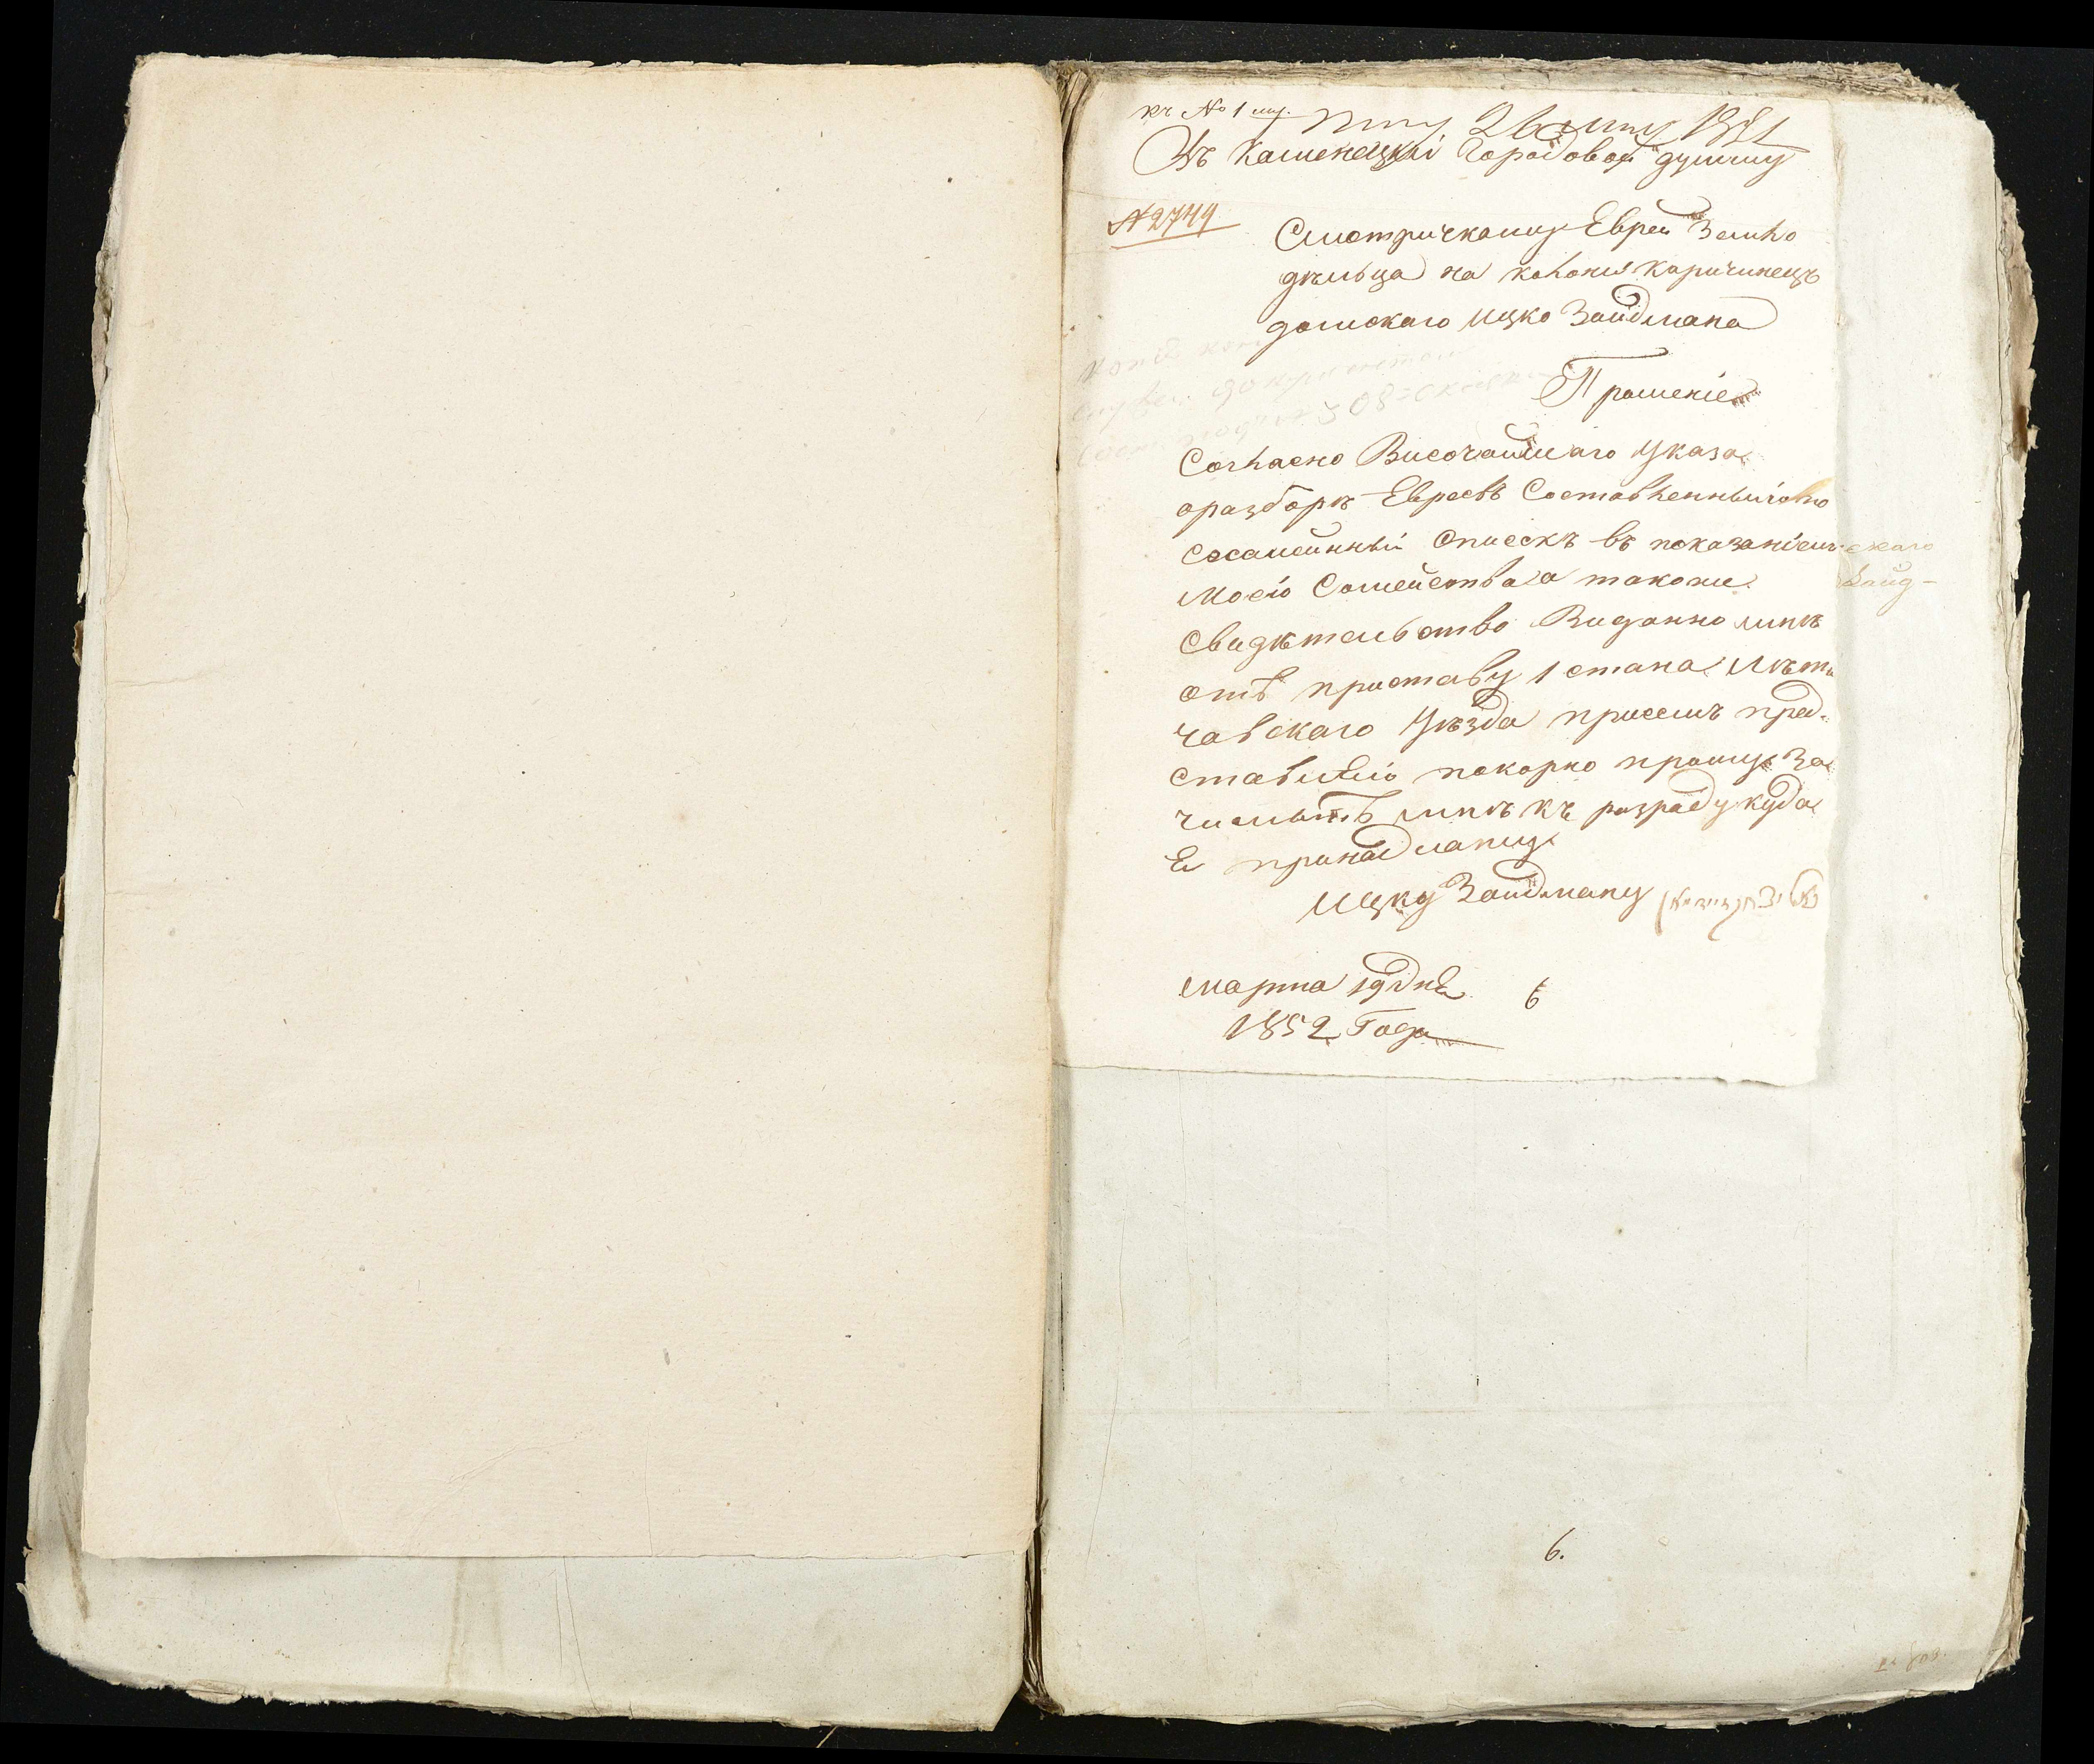 къ № 1
26 1852
Въ Каменецкій Городовой думму
№ 2749
Смотричкаму Евреи Земһо
дѣльца на коһоніи Каричинецъ
домскаго Ицко Зайдмана
Прошеніе
Согһасно Височайшаго Указа
оразборѣ Евреевъ Составһенный
Сосамейнный Списскъ въ показаніемъ
Моего Самейства а такоже
Свидѣтельство Виданно мнѣ
отъ приставу 1 стана Лѣти
чавскаго Уѣзда присемъ пред-
ставляю покорно прошу За
числить мнѣ къ разраду куда
Я принадлажу
Ицку Зайдману
марта 19 дня 6
1852 Года
6.